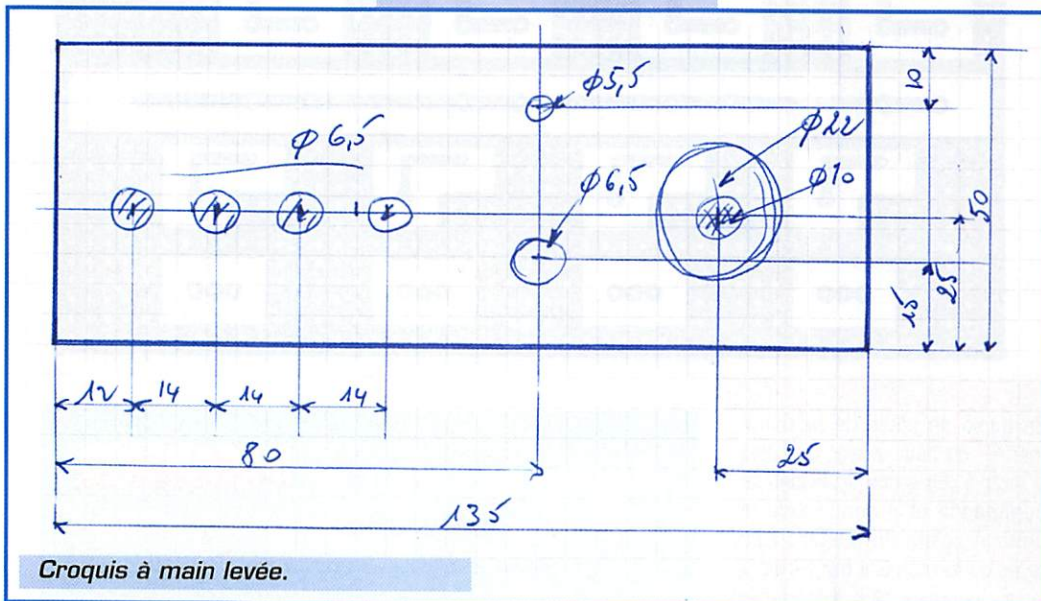 ϕ5,5
10
ϕ22
ϕ 6,5
ϕ6,5
ϕ10
50
25
15
12
14
14
14
80
25
135
Croquis à main levée.